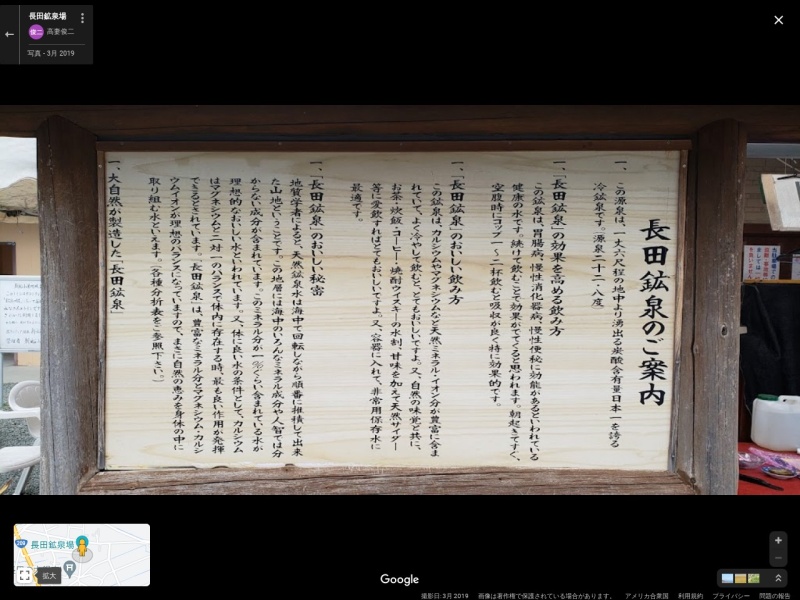 長田鉱泉場
俊二
高妻俊二
写真 - 3月 2019
長田鉱泉のご案内
一、この源泉は、一丈六尺程の地中より湧出る炭酸含有量日本一を誇る
冷鉱泉です。(源泉二十二・八度)
一、「長田鉱泉」の効果を高める飲み方
この鉱泉は、胃腸病、慢性消化器病、慢性便秘に効能があるといわれている
健康の水です。続けて飲むことで効果がでてくると思われます。朝起きてすぐ、
空腹時にコップ一〜二杯飲むと吸収が良く特に効果的です。
一、「長田鉱泉」のおいしい飲み方
この鉱泉は、カルシウムやマグネシウムなど天然ミネラル・イオン分が豊富に含ま
れていて、よく冷やして飲むと、とてもおいしいですよ。又、自然の味覚と共に、
お茶・炊飯・コーヒー・焼酎ウイスキーの水割、甘味を加えて天然サイダー
等に愛飲すればとてもおいしいですよ。又、容器に入れて、非常用保存水に
最適です。
一、「長田鉱泉」のおいしい秘密
地質学者によると、天然鉱泉水は海中で回転しながら順番に堆積して出来
た山地ということです。この地層には海中のいろんなミネラル成分や人智では分
からない成分が含まれています。このミネラル分が一%ぐらい含まれている水が
理想的なおいしい水といわれています。又、体に良い水の条件として、カルシウム
はマグネシウムと二対一のバランスで体内に存在する時、最も良い作用が発揮
できるとされています。「長田鉱泉」は、豊富なミネラル分とマグネシウム・カルシ
ウムイオンが理想のバランスになっていますので、まさに自然の恵みを身体の中に
取り組む水といえます。(各種分析表をご参照下さい。)
一、大自然が製造した「長田鉱泉」
208
長田鉱泉場
拡大
Google
撮影日: 3月 2019 画像は著作権で保護されている場合があります。 アメリカ合衆国 利用規約 プライバシー 問題の報告